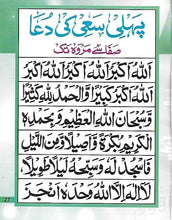 پہلی سعی کی دُعا
صفا سے مروہ تک
اَللّٰهُ اَكْبَرُ اَللّٰهُ اَكْبَرُ اَللّٰهُ اَكْبَرُ
اَللّٰهُ اَكْبَرُ كَبِيْرًا وَّالْحَمْدُ لِلّٰهِ كَثِيْرًا
وَّسُبْحَانَ اللّٰهِ الْعَظِيْمِ وَبِحَمْدِهِ
الْكَرِيْمِ بُكْرَةً وَّاَصِيْلًا وَمِنَ اللَّيْلِ
فَاسْجُدْ لَهُ وَسَبِّحْهُ لَيْلًا طَوِيْلًا
لَآ اِلٰهَ اِلَّا اللّٰهُ وَحْدَهُ اَنْجَزَ
27